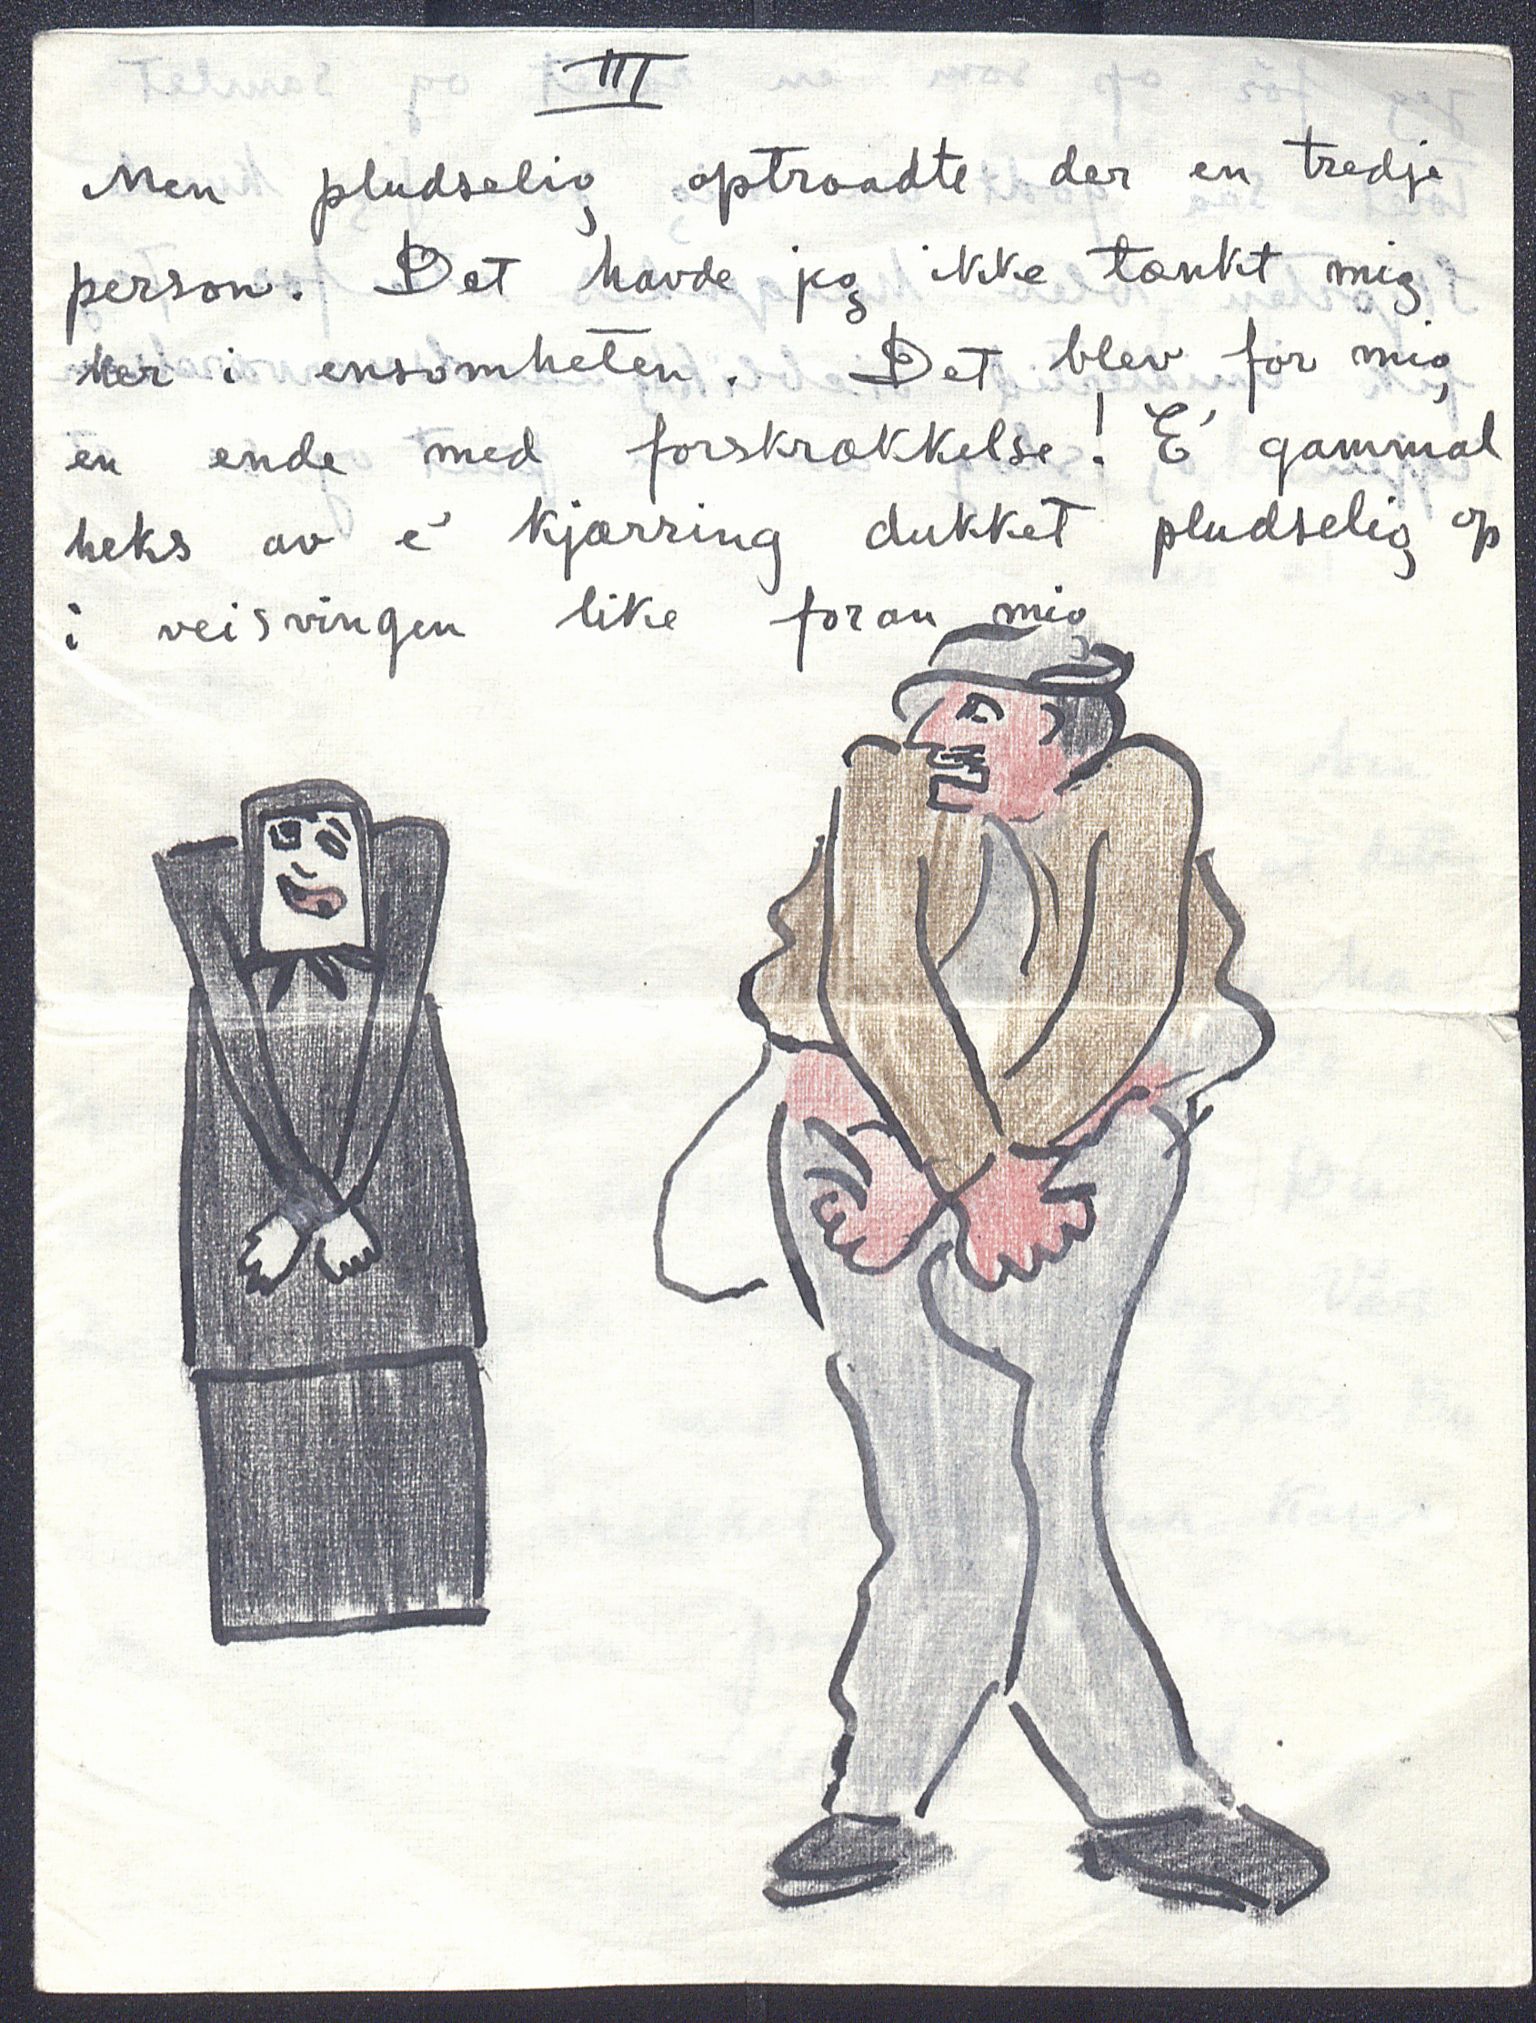 III
Men pludselig optraadte der en tredje
person. Det havde jeg ikke tænkt mig
her i ensomheten. Det blev for mig
en ende med forskrækkelse! E' gammal
heks av e' kjærring dukket pludselig op
i veisvingen like foran mig